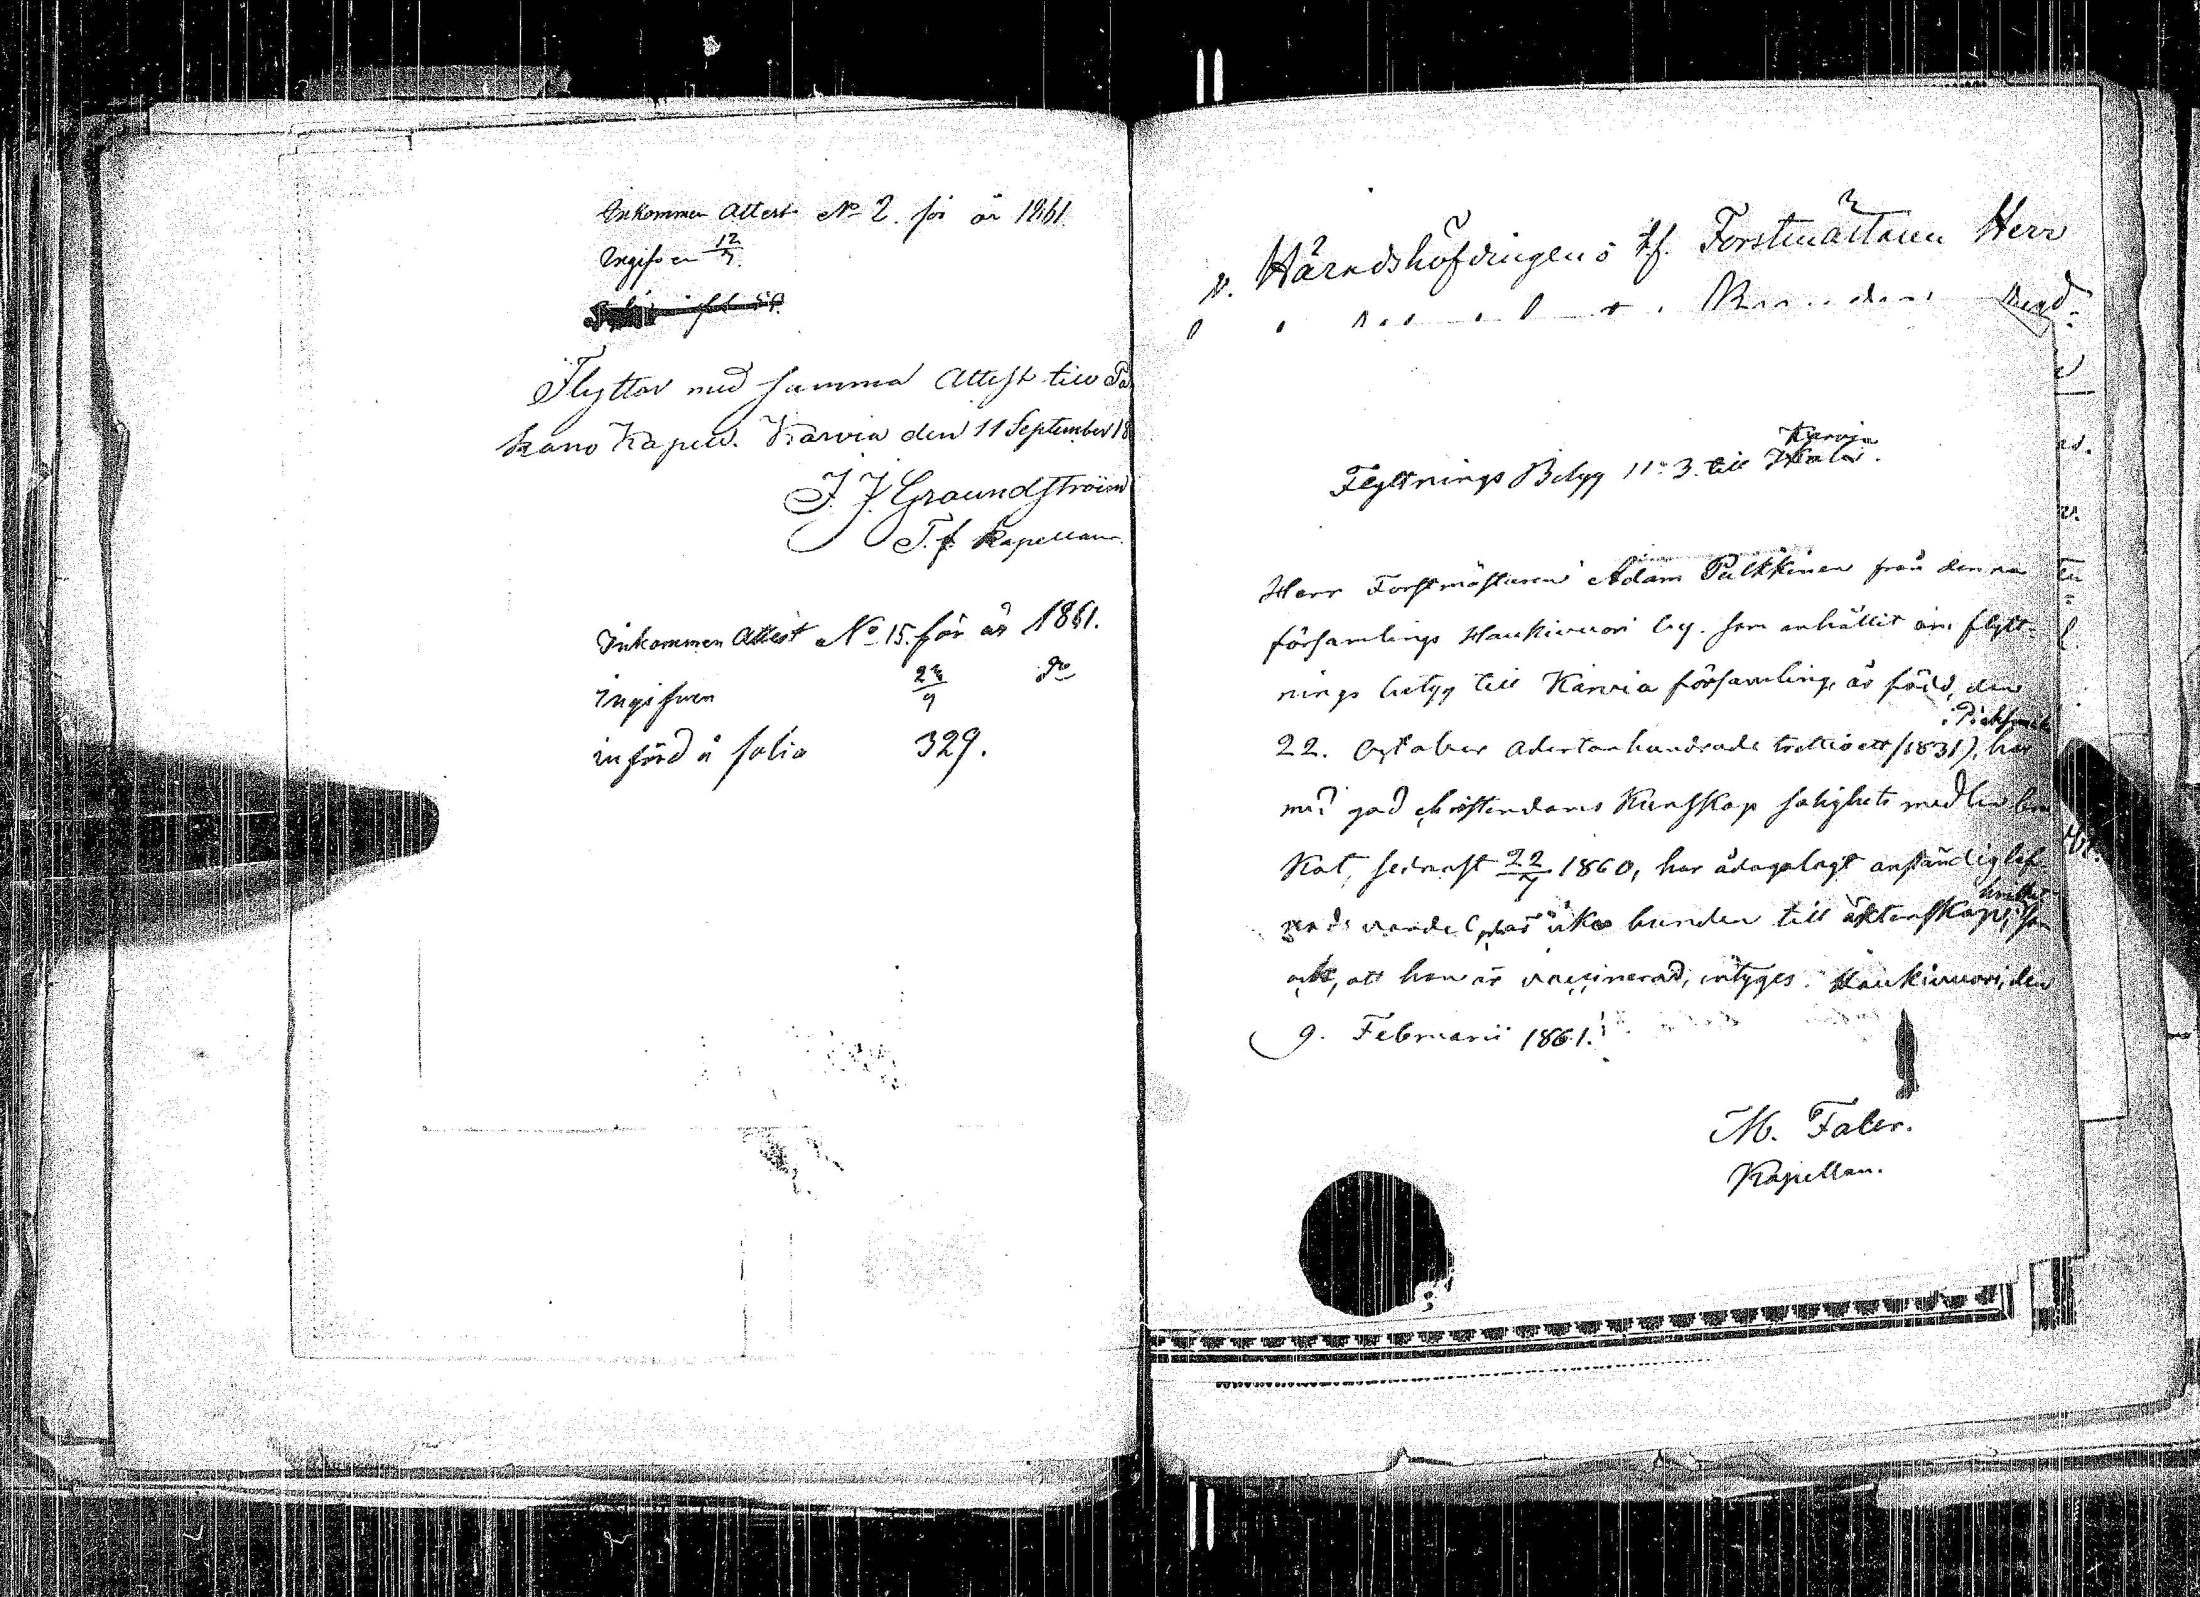 Inkommen Attest No 2. för år 1861.
Ingifven 12/7.
Flyttar med samma Attest till Par
kano Kapell. Karvia den 11 September 18
J. J. Graundström
T. f. Kapellan.
Inkommen Attest No 15. för år 1861.
Ingifven 23/9 do
införd å folio 329.
v. Häradshöfdingens tf. Forstmästaren Herr
Flyttnings Betyg No 3. till Karvia
Herr Forstmästaren Adam Pulkkinen från denna
församlings Haukivuori by. som anhållit om flytt-
nings betyg till Karvia församling, är född, den
i Pieksämä
22. October Adertonhundrade trettioett (1831), har
med god Christendoms Kunskap salighets medlen bru
Kat, sednast 22/7 1860, har ådagalagt anständig lef
nads vandel, är icke bunden till äktenskap, som
ock, att han är vaccinerad, intyges. Haukivuori, den
9. Februarii 1861.
M. Faler.
Kapellan.